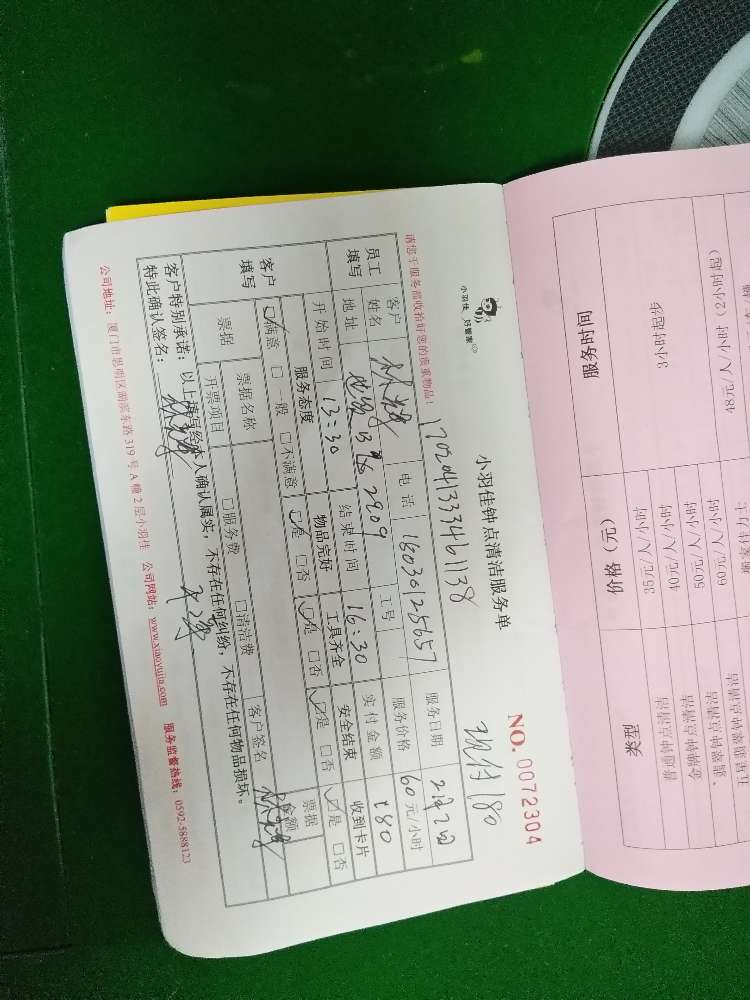 小羽佳 好管家
小羽佳钟点清洁服务单
NO. 0072304
1702041333461138
现付180
请您于服务前收拾好您的贵重物品!
员工填写
客户姓名
电话 18030125657
服务日期 2月2日
地址
B
2909
工号
服务价格 60元/小时
开始时间 13:30
结束时间 16:30
实付金额 180
客户填写
服务态度
物品完好
工具齐全
安全结束
收到卡片
☑满意 □一般 □不满意
☑是 □否
☑是 □否
☑是 □否
☑是 □否
票据
票据名称
票据
开票项目
□服务费
□清洁费
金额
客户签名
客户特别承诺:以上填写经本人确认属实,不存在任何纠纷,不存在任何物品损坏。
特此确认签名:
公司地址:厦门市思明区莆溪东路319号A幢2层小羽佳 公司网站:www.xiaoyujia.com 服务监督热线:0592-5888123
类型
价格(元)
服务时间
普通钟点清洁
35元/人/小时
3小时起步
金牌钟点清洁
40元/人/小时
翡翠钟点清洁
50元/人/小时
五星翡翠钟点清洁
60元/人/小时
48元/人/小时(2小时起)